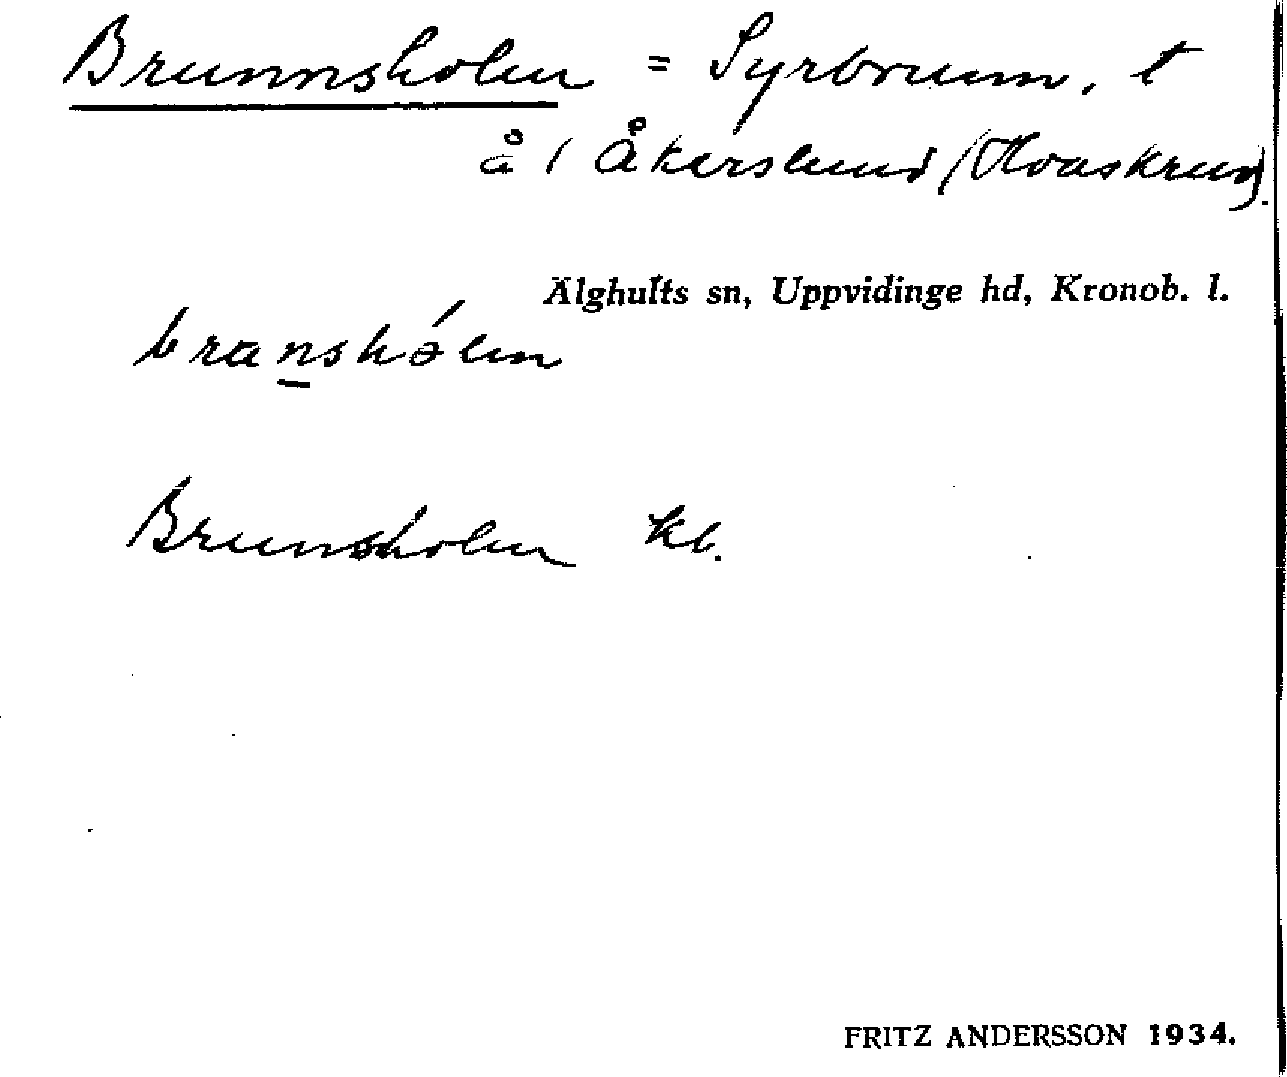 Brunnsholm = Syrbrunn, t
å 1 Åkerslund (Hvaskrun).
Älghults sn, Uppvidinge hd, Kronob. l.
branshólm
Brunsholm kb.
FRITZ ANDERSSON 1934.